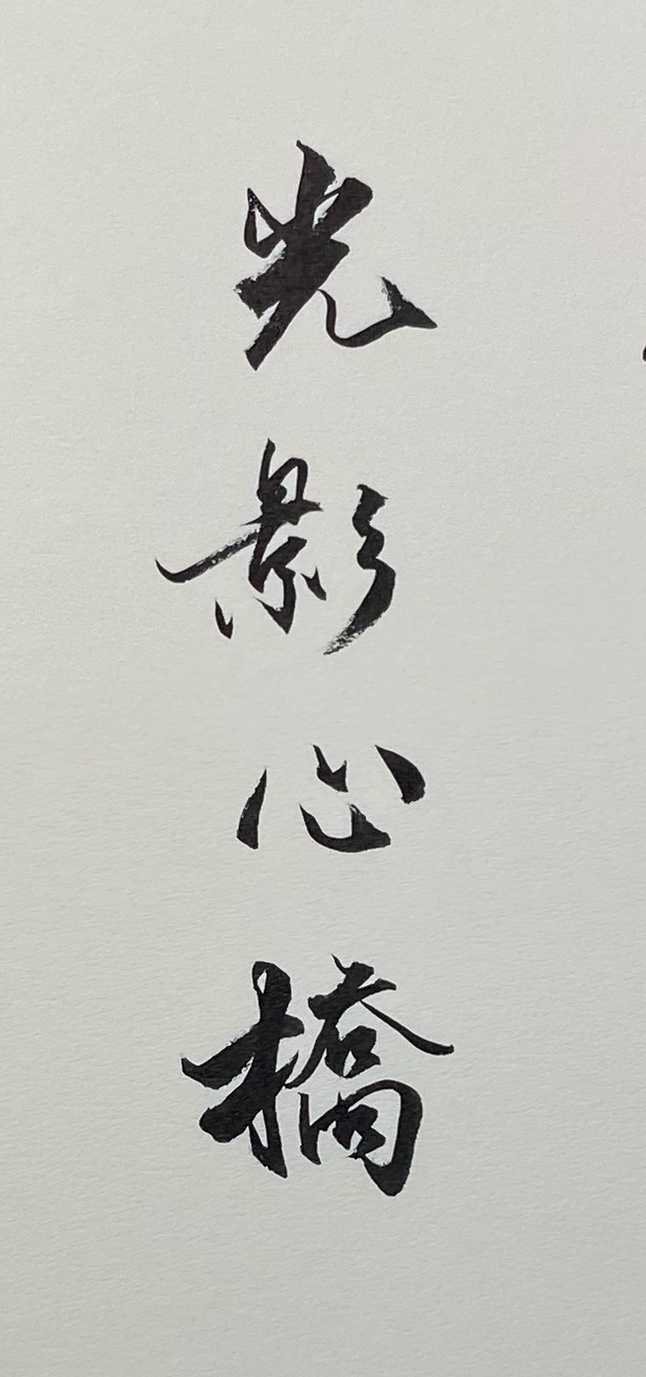 光影心橋